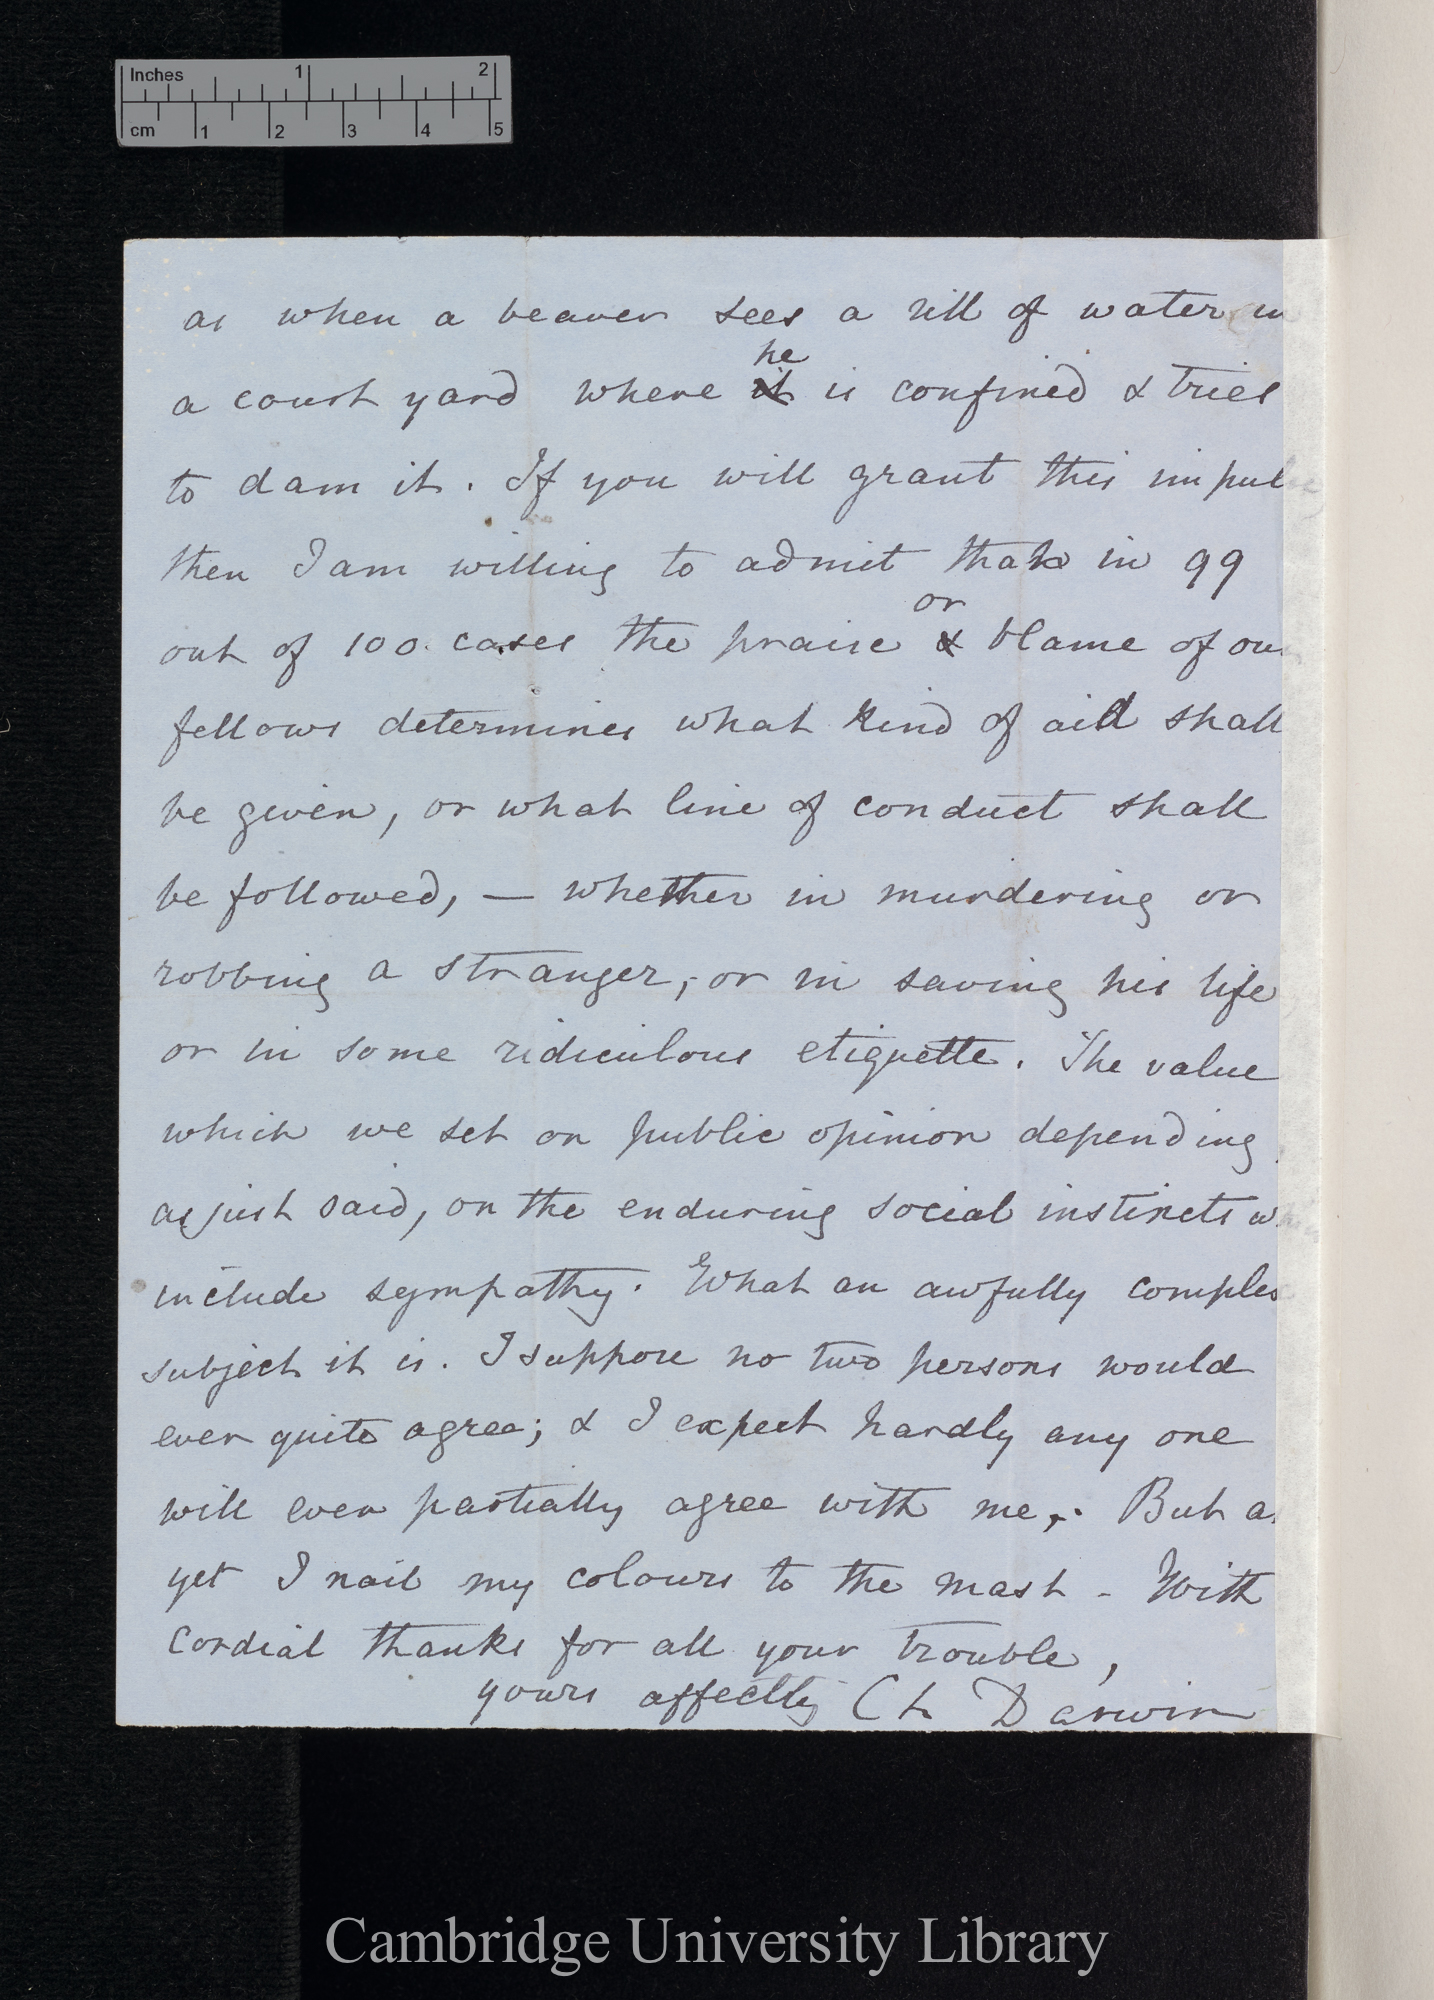 Inches 1 2
cm 1 2 3 4 5
as when a beaver sees a rill of water in
he
a court yard where it is confined & tries
to dam it. If you will grant this impulse
then I am willing to admit that in 99
or
out of 100 cases the praise & blame of our
fellows determines what kind of aid shall
be given, or what line of conduct shall
be followed, — whether in murdering or
robbing a stranger, or in saving his life
or in some ridiculous etiquette. The value
which we set on public opinion depending,
as just said, on the enduring social instincts
include sympathy. What an awfully complex
subject it is. I suppose no two persons would
ever quite agree; & I expect hardly any one
will even partially agree with me,. But as
yet I nail my colours to the mast - With
cordial thanks for all your trouble,
yours affectly Ch Darwin
Cambridge University Library